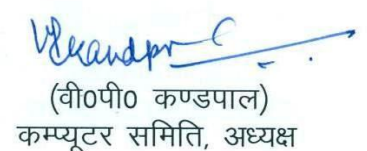 (वी0पी0 कण्डपाल)
कम्प्यूटर समिति, अध्यक्ष